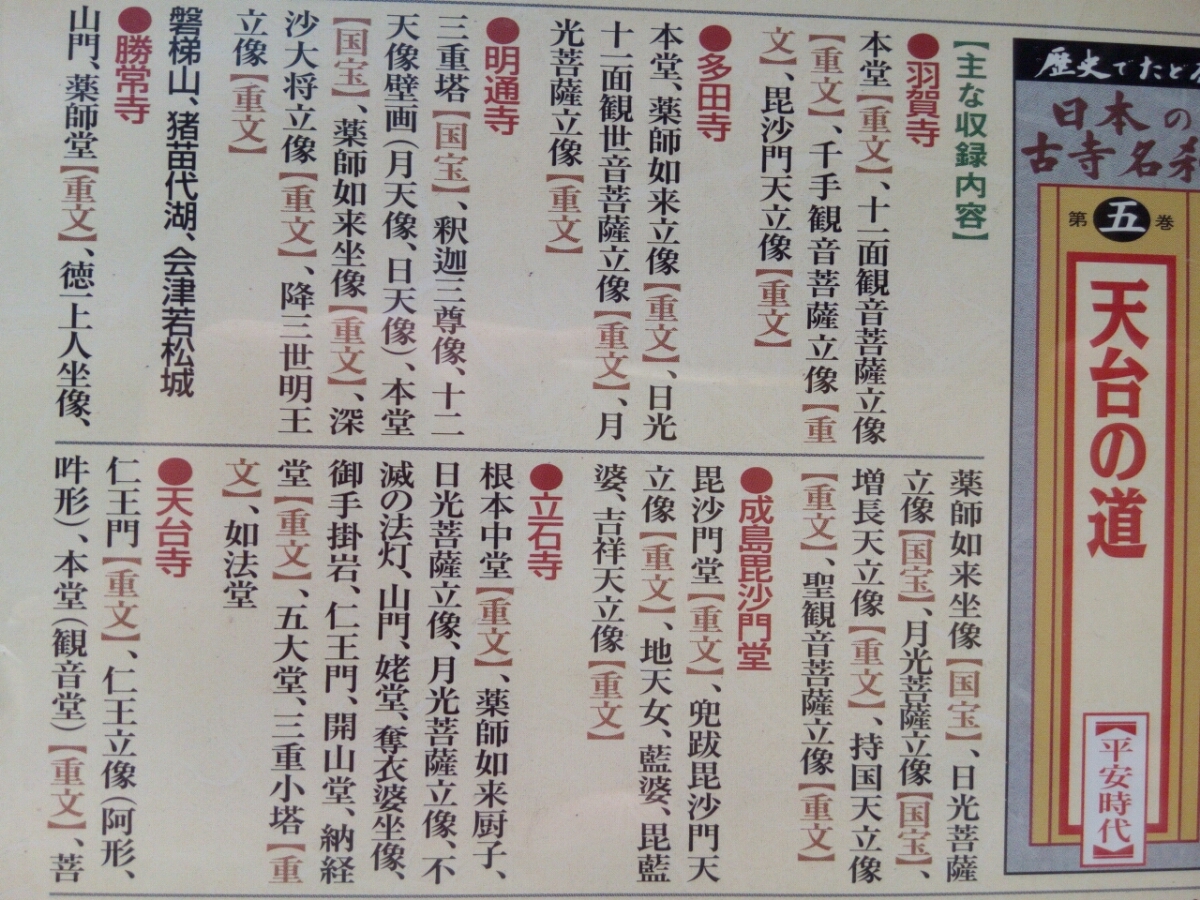 歴史でたどる
日本の
古寺名刹
第五巻
天台の道
【平安時代】
【主な収録内容】
●羽賀寺
本堂【重文】、十一面観音菩薩立像
【重文】、千手観音菩薩立像【重
文】、毘沙門天立像【重文】
●多田寺
本堂、薬師如来立像【重文】、日光
十一面観世音菩薩立像【重文】、月
光菩薩立像【重文】
●明通寺
三重塔【国宝】、釈迦三尊像、十二
天像壁画(月天像、日天像)、本堂
【国宝】、薬師如来坐像【重文】、深
沙大将立像【重文】、降三世明王
立像【重文】
磐梯山、猪苗代湖、会津若松城
●勝常寺
山門、薬師堂【重文】、徳一上人坐像、
薬師如来坐像【国宝】、日光菩薩
立像【国宝】、月光菩薩立像【国宝】、
増長天立像【重文】、持国天立像
【重文】、聖観音菩薩立像【重文】
●成島毘沙門堂
毘沙門堂【重文】、兜跋毘沙門天
立像【重文】、地天女、藍婆、毘藍
婆、吉祥天立像【重文】
●立石寺
根本中堂【重文】、薬師如来厨子、
日光菩薩立像、月光菩薩立像、不
滅の法灯、山門、姥堂、奪衣婆坐像、
御手掛岩、仁王門、開山堂、納経
堂【重文】、五大堂、三重小塔【重
文】、如法堂
●天台寺
仁王門【重文】、仁王立像(阿形、
吽形)、本堂(観音堂)【重文】、菩